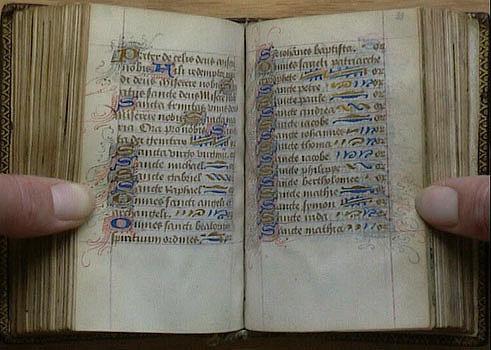 Pater de celis deus miser
nobis Fili redemptor
di deus miserere nobis
ritus sancte deus Miserere
Sancta trinitas
miserere nobis
ria Ora pro nobis
dei
Sancta virgo virginum
Sancte michael or
Sancte Gabriel or
Sancte Raphael or
Omnes sancti angeli
archangeli
Omnes sancti beatorum
spirituum ordines
Sancte iohannes baptista
Omnes sancti patriarche
prophete or
Sancte petre or
Sancte paule or
Sancte andrea or
Sancte iacobe or
Sancte iohannes or
Sancte thoma or
Sancte iacobe or
Sancte philippe or
Sancte bertholomee or
Sancte or
Sancte symon or
Sancte iuda or
Sancte mathia or